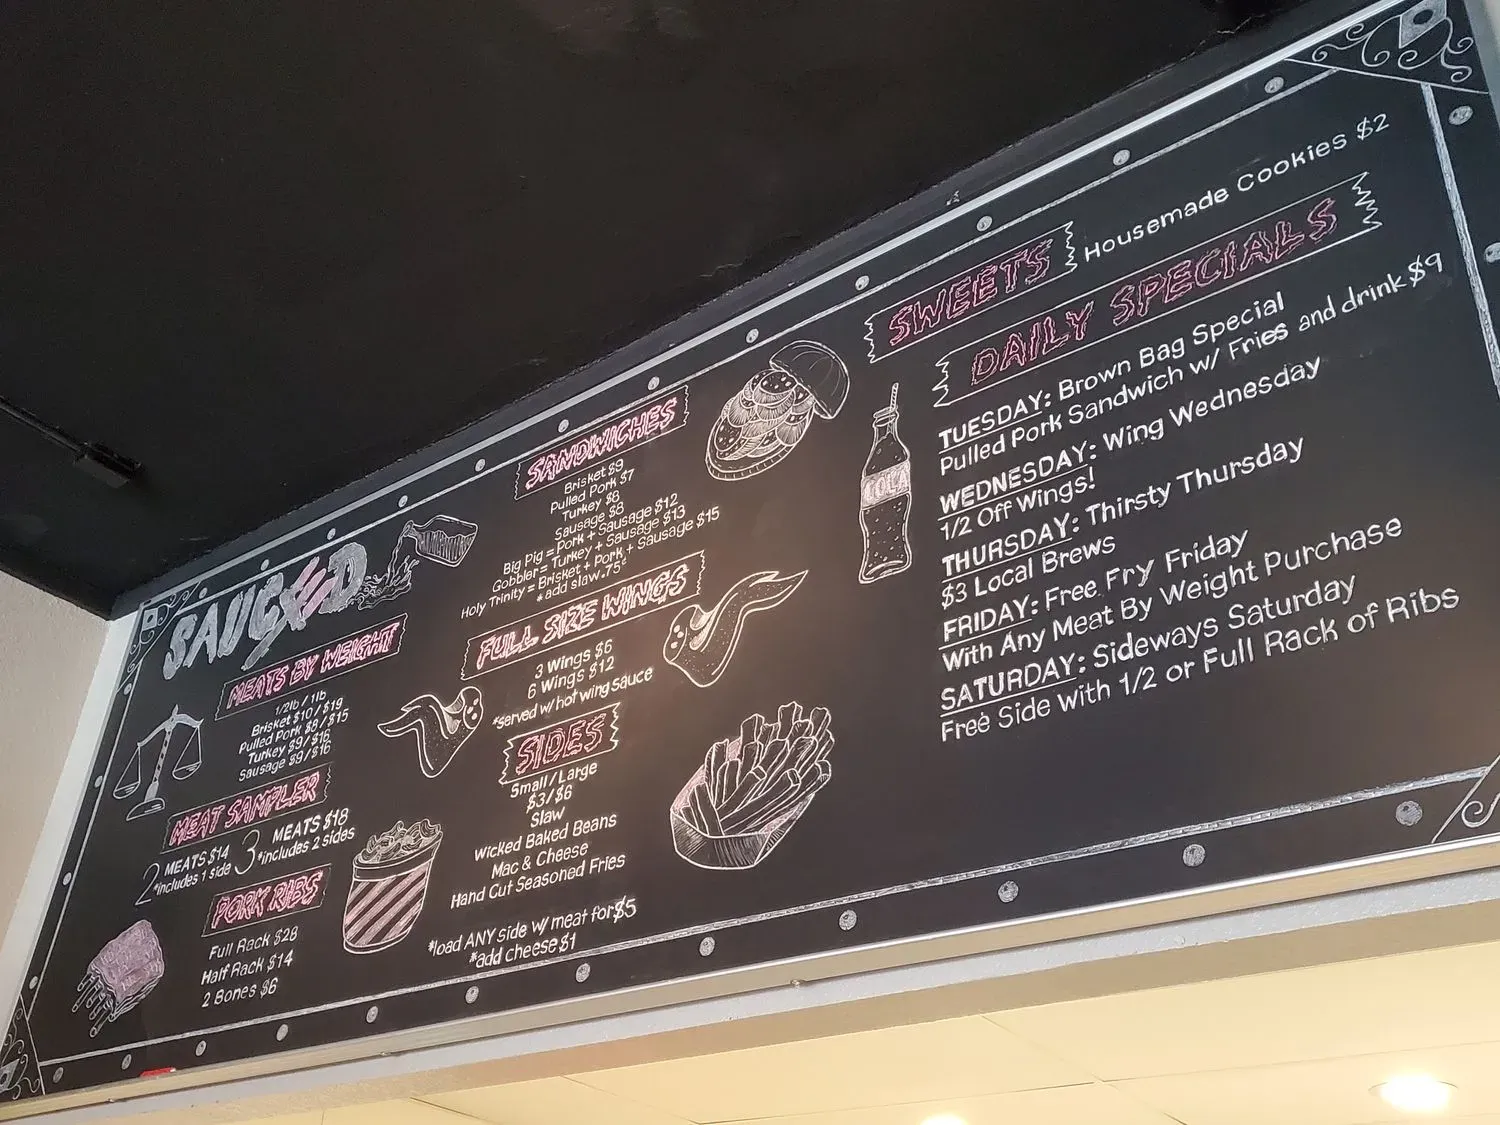 SAUCED
MEATS BY WEIGHT
1/2lb / 1lb
Brisket $10 / $19
Pulled Pork $8 / $15
Turkey $9 / $16
Sausage $9 / $16
MEAT SAMPLER
2 MEATS $14
*includes 1 side
3 MEATS $18
*includes 2 sides
PORK RIBS
Full Rack $28
Half Rack $14
2 Bones $6
SANDWICHES
Brisket $9
Pulled Pork $7
Turkey $8
Sausage $8
Big Pig = Pork + Sausage $12
Gobbler = Turkey + Sausage $13
Holy Trinity = Brisket + Pork + Sausage $15
*add slaw .75¢
FULL SIZE WINGS
3 Wings $6
6 Wings $12
*served w/ hot wing sauce
SIDES
Small / Large
$3 / $6
Slaw
Wicked Baked Beans
Mac & Cheese
Hand Cut Seasoned Fries
*load ANY side w/ meat for $5
*add cheese $1
COLA
SWEETS
Homemade Cookies $2
DAILY SPECIALS
TUESDAY: Brown Bag Special
Pulled Pork Sandwich w/ Fries and drink $9
WEDNESDAY: Wing Wednesday
1/2 Off Wings!
THURSDAY: Thirsty Thursday
$3 Local Brews
FRIDAY: Free Fry Friday
With Any Meat By Weight Purchase
SATURDAY: Sideways Saturday
Free Side With 1/2 or Full Rack of Ribs